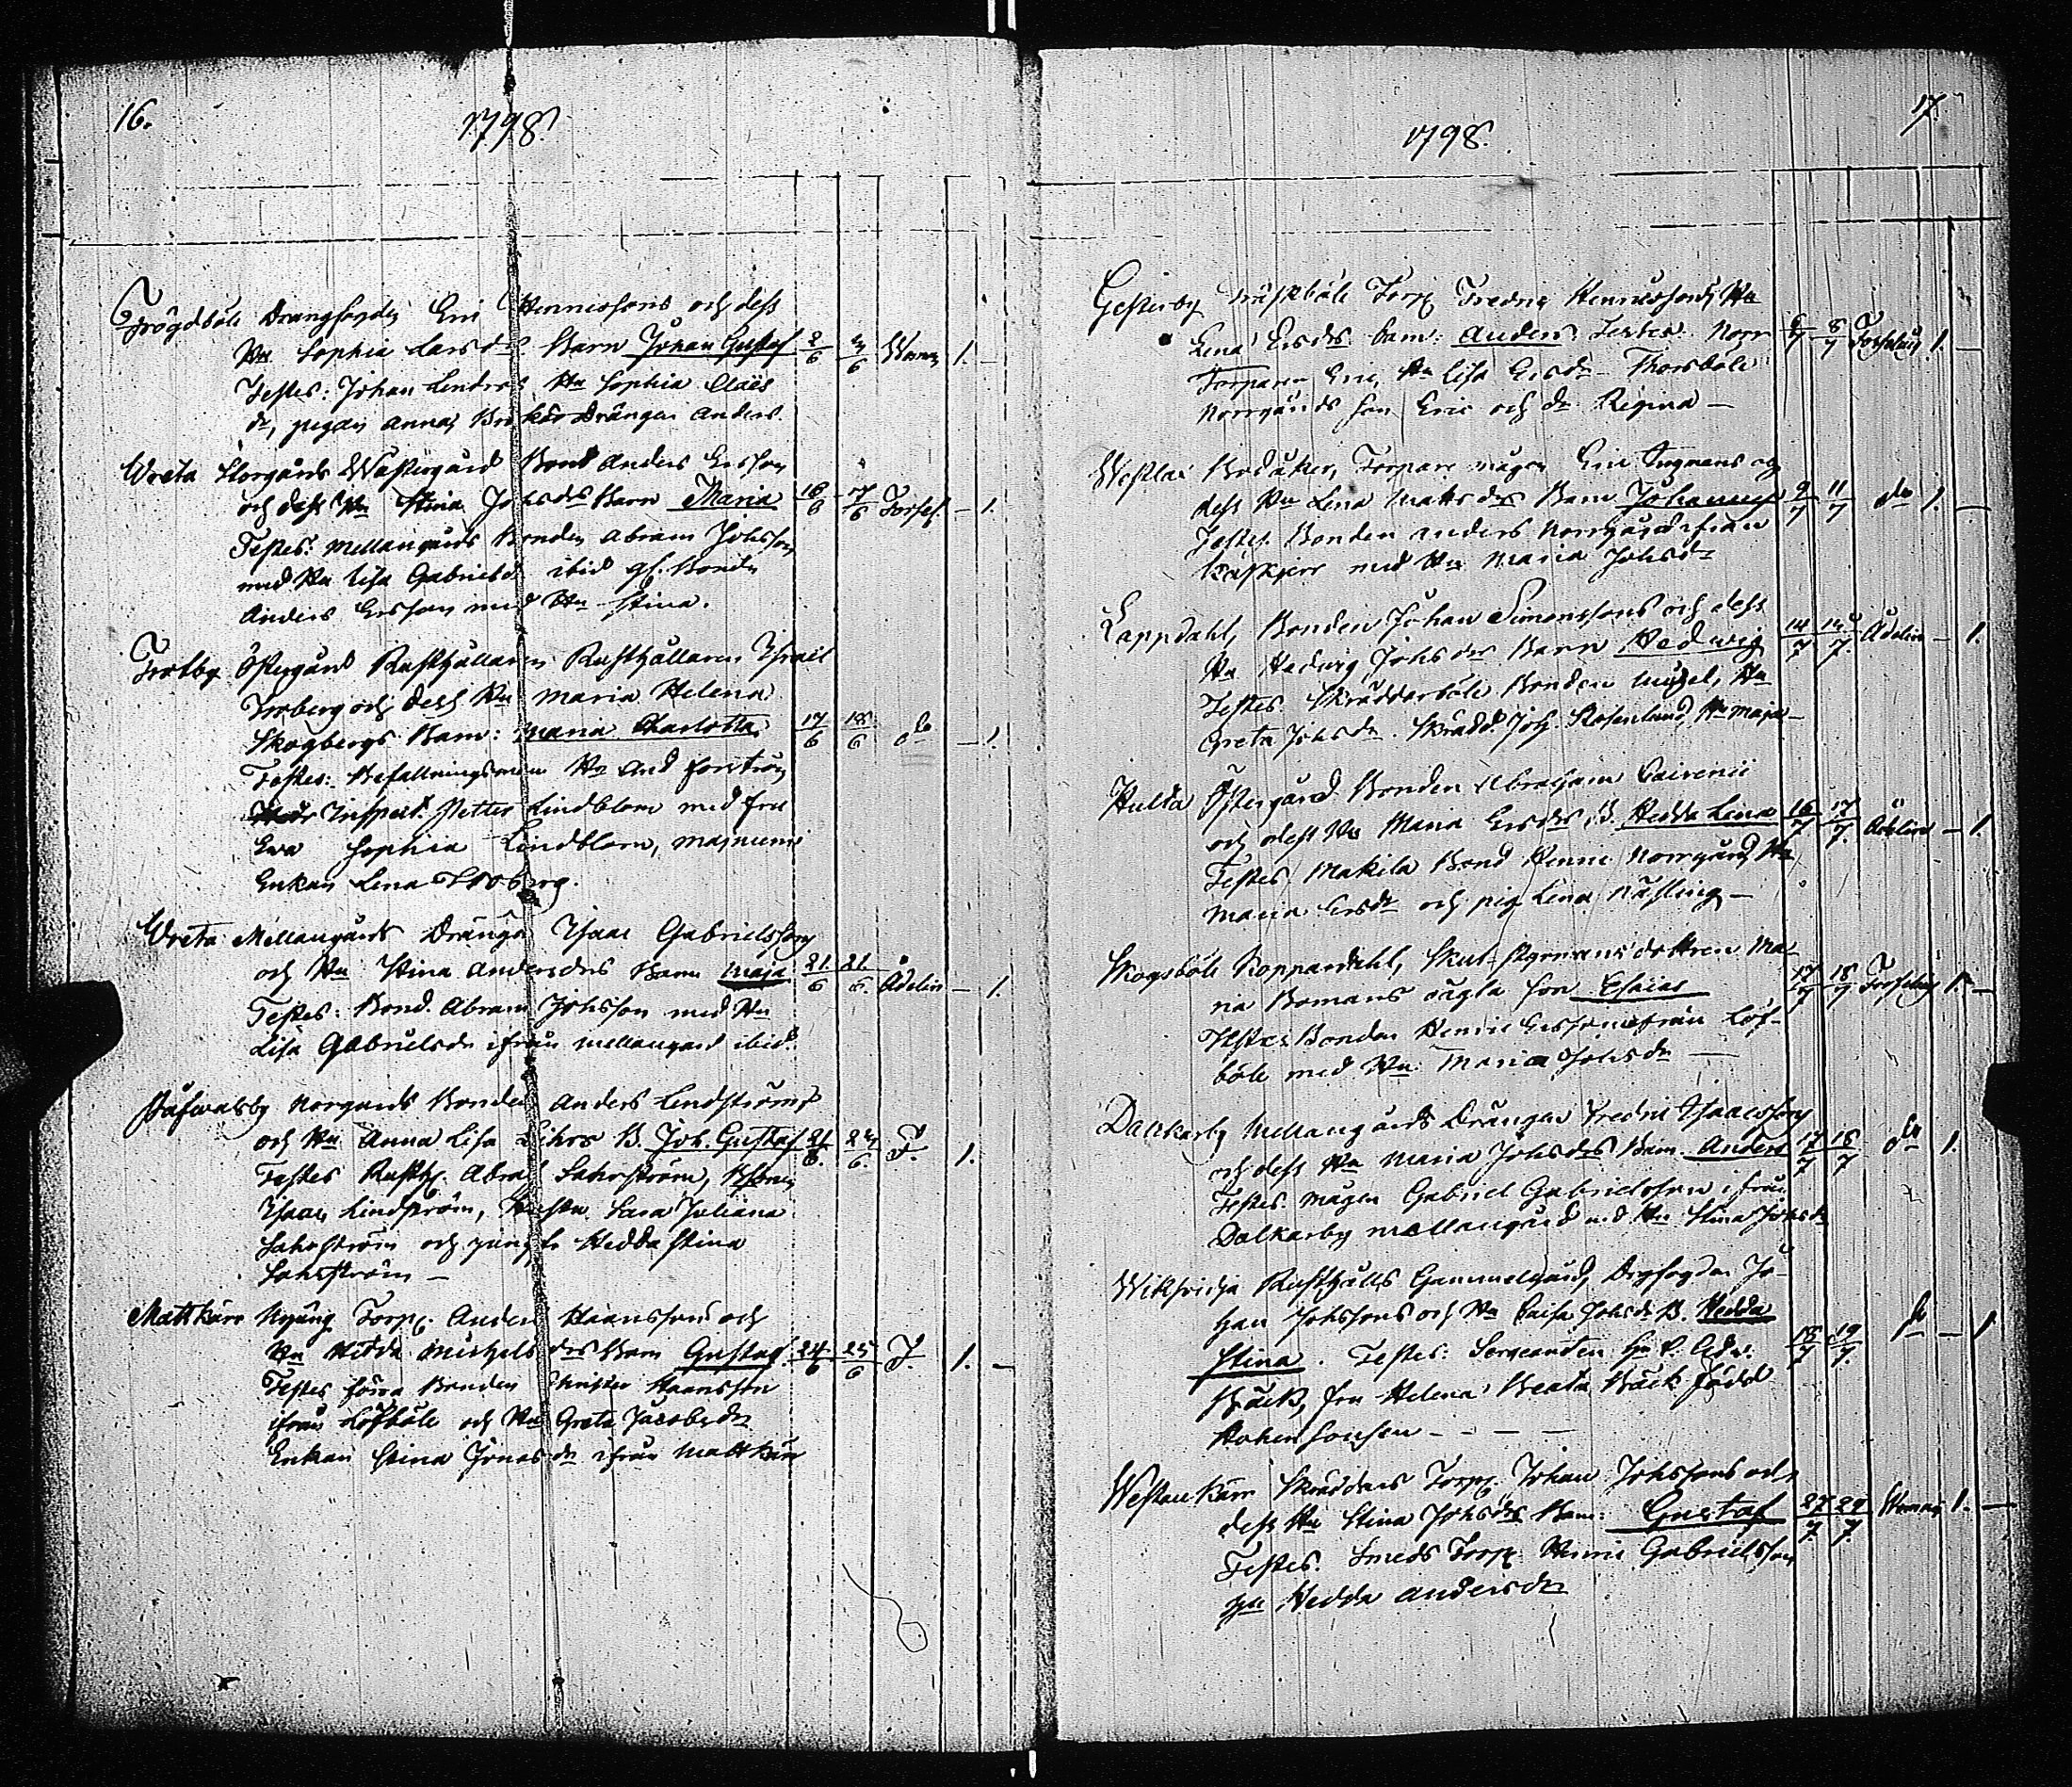 16.
1798.
Frögdböle Drängfogden Eric Henricsons och dess
Hu Sophia Larsdrs Barn Johan Gustaf 2/6 3/6 1. –
Testes: Johan Hu Sophia Claës
dr, pigan Anna, Drängen Anders.
Wreta Storgårds Wästergård Bond Anders Ersson
och dess Hu Stina Johsdrs Barn Maria 16/6 17/6 Forsel. – 1.
Testes: Mellangårds Bonden Abram Johsson
med Hu Lisa Gabrielsd. ibid Bonden
Anders Ersson med Hu Stina.
Trotby Östergård Rusthållaren Rusthållaren Israel
Troberg och dess Hu Maria Helena
Skogbergs Barn: Maria Charlotta 17/6 18/6 do – 1.
Testes: Befallningsman Hr And Forström
Inspect. Petter Lindblom med fru
Eva Sophia Lindblom,
Enkan Lena Troberg.
Wreta Mellangårds Drängen Isaac Gabrielsson
och Hu Stina Andersdrs Barn Maja 21/6 21/6. Adelin – 1.
Testes: Bond. Abram Johsson med Hu
Lisa Gabrielsdr ifrån Mellangård ibid.
Påfwalsby Norgårds Bonden Anders Lindströms
och Hu Anna Lisa B. Joh. Gustaf 21/6. 24/6. F. 1.
Testes Rusth. Abra Sahrström,
Isaac Lindström, Hustr. Sara Juliana
Sahrström och Hedda Stina
Sahrström –
Mattkärr Nyäng Torp. Anders Hanssons och
Hu Hedda Michelsdrs Barn Gustaf 24/6 25/6 F. 1. –
Testes förra Bonden Christer Hansson
ifrån Löfböle och Hu Greta Jacobsdr
Enkan Stina Jönasdr ifrån Mattkärr
17.
1798.
Gesterby Träskböle Torp Fredric Henricssons Hu
Lena Ersdrs barn: Anders. Testes. Norr 6/7 8/7 Forselius 1. –
Torparen Eric, Hu Lisa Ersdr – Thorsböle
Norrgårds son Eric och dr Regina –
Westlax Bodåker, Torpare mågen Eric Ingmans och
dess Hu Lena Mattsdrs Barn Johannes 9/7 11/7 do 1. –
Testes. Bonden Anders Norrgård ifrån
med Hu Maria Johsdr
Lappdahl, Bonden Johan Simonssons och dess
Hu Hedwig Johsdrs Barn Hedwig 14/7 14/7. Adelin – 1.
Testes Skräddarböle Bonden Michel, Hu
Greta Johsdr. Skrädd. Joh. Rosenlund, Hu Maja –
Hulta Östergård Bonden Abraham
och dess Hu Maria Ersdrs B. Hedda Lena 16/7 17/7. Adelin – 1.
Testes Makila Bond Henric Norrgård, Hu
Maria Ersdr och pig. Lena Näsling –
Skogsböle Koppardahl, Skut-styrmans dottren Ma-
ria Bomans oägta son Esaias 17/7 18/7 Forselius 1. –
Testes Bonden Henric Ersson ifrån Löf-
böle med Hu Maria Johsdr –
Dalkarby Mellangårds Drängen Fredric Isaacsson
och dess Hu Maria Johsdrs Barn. Anders 17/7 18/7 do 1.
Testes. Mågen Gabriel Gabrielsson ifrån
Dalkarby Mellangård md Hu Stina Johsdr
Wiksridja Rusthålls Gammelgård, Drgfogden Jo-
han Johssons och Hu Caisa Johsdr B. Hedda
Stina. Testes: Sergeanten 18/7 19/7. do – 1.
Bäck, fru Helena Beata Bäck född
– – – –
Westankärr Skräddars Torp. Johan Johssons och
dess Hu Stina Johsdrs Barn: Gustaf 27/7. 29/7. 1. –
Testes. Smeds Torp. Henric Gabrielsson
Hu Hedda Andersdr